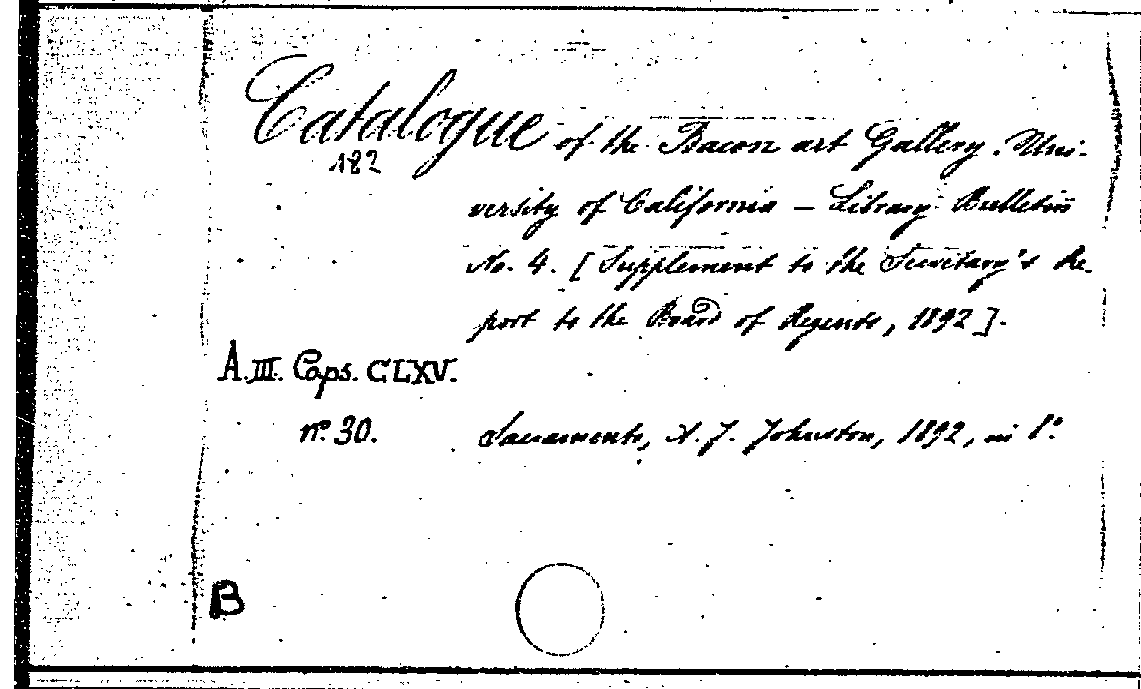 Catalogue of the Bacon art Gallery. Uni-
182
versity of California – Library Bulletin
No. 4. [Supplement to the Secretary's Re-
port to the Board of Regents, 1892].
A.III. Caps. CLXV.
nº 30. Sacramento, A. J. Johnston, 1892, in 8º.
B